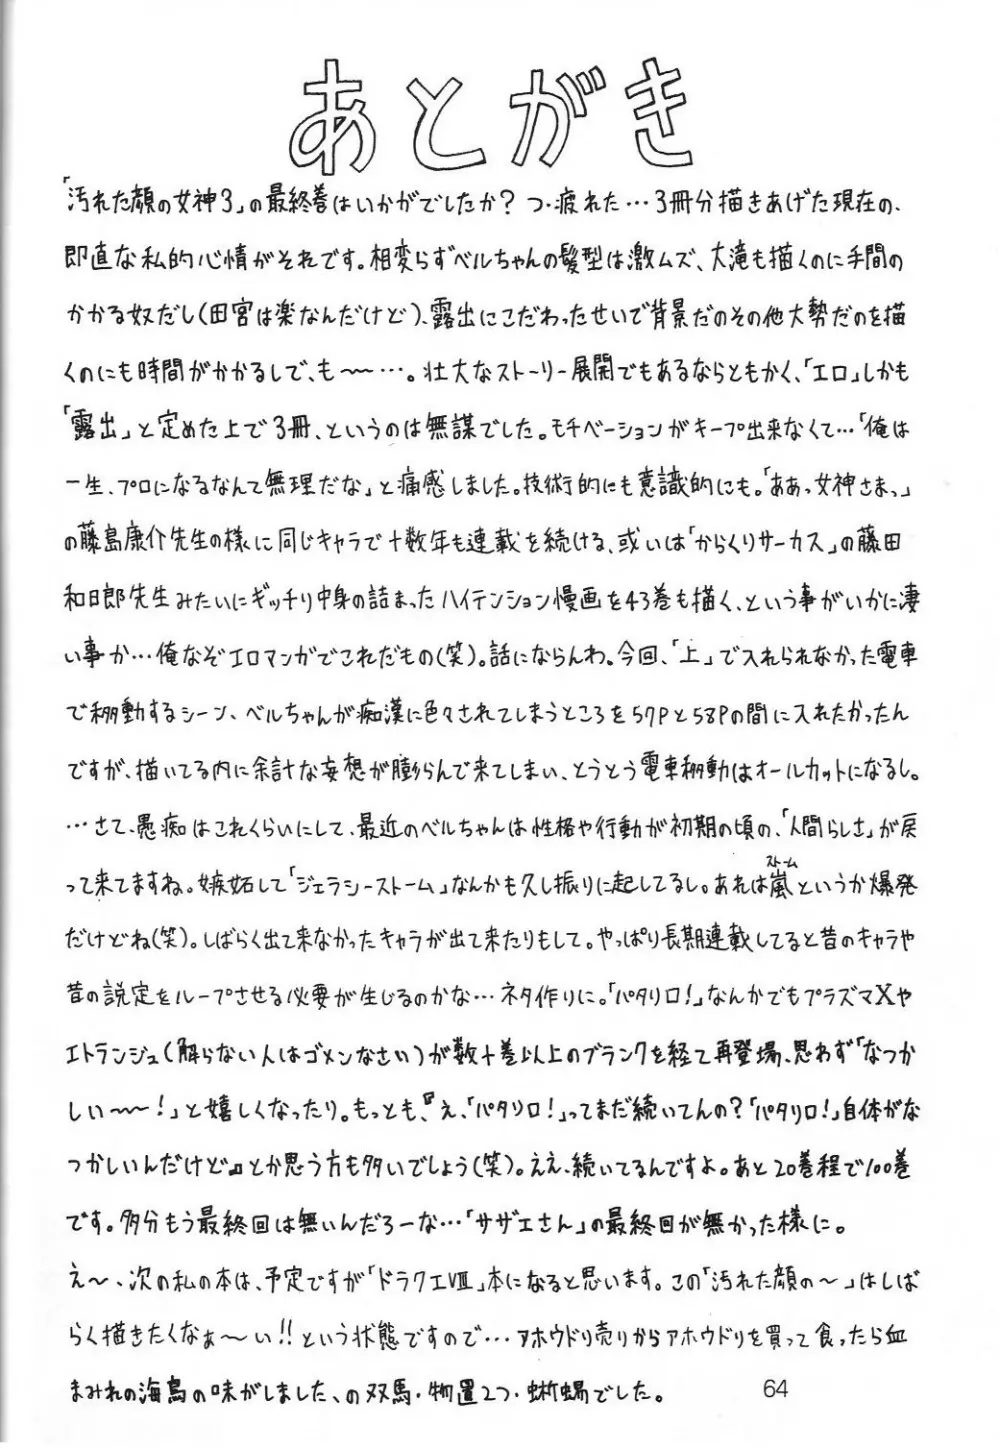 あとがき
「汚れた顔の女神3」の最終巻はいかがでしたか？つ・疲れた…3冊分描きあげた現在の、
即直な私的心情がそれです。相変らずベルちゃんの髪型は激ムズ、大滝も描くのに手間の
かかる奴だし(田宮は楽なんだけど)、露出にこだわったせいで背景だのその他大勢だのを描
くのにも時間がかかるしで、も〜〜…。壮大なストーリー展開でもあるならともかく、「エロ」しかも
「露出」と定めた上で3冊、というのは無謀でした。モチベーションがキープ出来なくて…「俺は
一生、プロになるなんて無理だな」と痛感しました。技術的にも意識的にも。「ああっ女神さまっ」
の藤島康介先生の様に同じキャラで十数年も連載を続ける、或いは「からくりサーカス」の藤田
和日郎先生みたいにギッチリ中身の詰まったハイテンション漫画を43巻も描く、という事がいかに凄
い事か…俺なぞエロマンガでこれだもの(笑)。話にならんわ。今回、「上」で入れられなかった電車
で移動するシーン、ベルちゃんが痴漢に色々されてしまうところを57Pと58Pの間に入れたかったん
ですが、描いてる内に余計な妄想が膨らんで来てしまい、とうとう電車移動はオールカットになるし。
…さて、愚痴はこれくらいにして、最近のベルちゃんは性格や行動が初期の頃の、「人間らしさ」が戻
って来てますね。嫉妬して「ジェラシーストーム」なんかも久し振りに起してるし。あれは嵐(ストーム)というか爆発
だけどね(笑)。しばらく出て来なかったキャラが出て来たりもして。やっぱり長期連載してると昔のキャラや
昔の説定をループさせる必要が生じるのかな…ネタ作りに。「パタリロ！」なんかでもプラズマXや
エトランジュ(解らない人はゴメンなさい)が数十巻以上のブランクを経て再登場、思わず「なつか
しい〜〜！」と嬉しくなったり。もっとも、『え、「パタリロ！」ってまだ続いてんの？「パタリロ！」自体がな
つかしいんだけど』とか思う方も多いでしょう(笑)。ええ、続いてるんですよ。あと20巻程で100巻
です。多分もう最終回は無いんだろーな…「サザエさん」の最終回が無かった様に。
え〜、次の私の本は、予定ですが「ドラクエⅧ」本になると思います。この「汚れた顔の〜」はしば
らく描きたくなぁ〜い！！という状態ですので…アホウドリ売りからアホウドリを買って食ったら血
まみれの海鳥の味がしました、の双馬・物置2つ・蜥蜴でした。
64